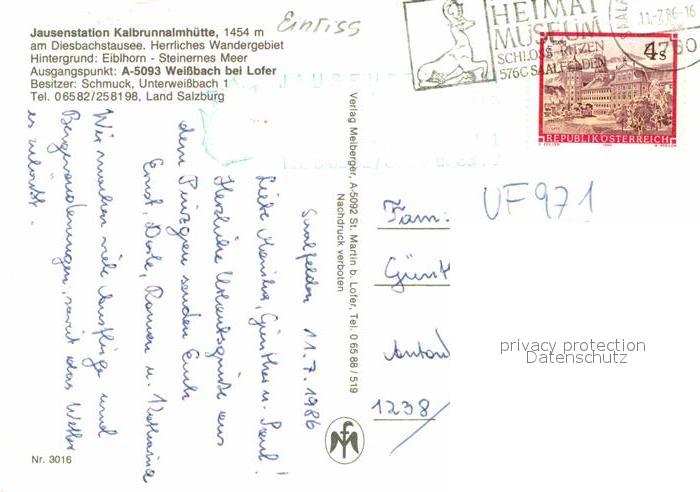 Jausenstation Kalbrunnalmhütte, 1454 m
am Diesbachstausee. Herrliches Wandergebiet
Hintergrund: Eiblhorn - Steinernes Meer
Ausgangspunkt: A-5093 Weißbach bei Lofer
Besitzer: Schmuck, Unterweißbach 1
Tel. 06582/258198, Land Salzburg
Eintiss
HEIMAT
MUSEUM
SCHLOSS RITZEN
5760 SAALFELDEN
11-7.86-16
5760
4s
REPUBLIK ÖSTERREICH
Saalfelden 11.7.1986
Liebe Monika, Günther u. Paul!
Herzliche Urlaubsgrüße aus
dem Pinzgau senden Euch
Ernst, Dorle, Roman u. Katharina
Wir machen viele Ausflüge und
Bergwanderungen, soweit das Wetter
es zuläßt.
Verlag Meiberger, A-5092 St. Martin b. Lofer, Tel. 0 65 88 / 519
Nachdruck verboten
Fam.
Günt
Anton
1238/
UF971
privacy protection
Datenschutz
Nr. 3016